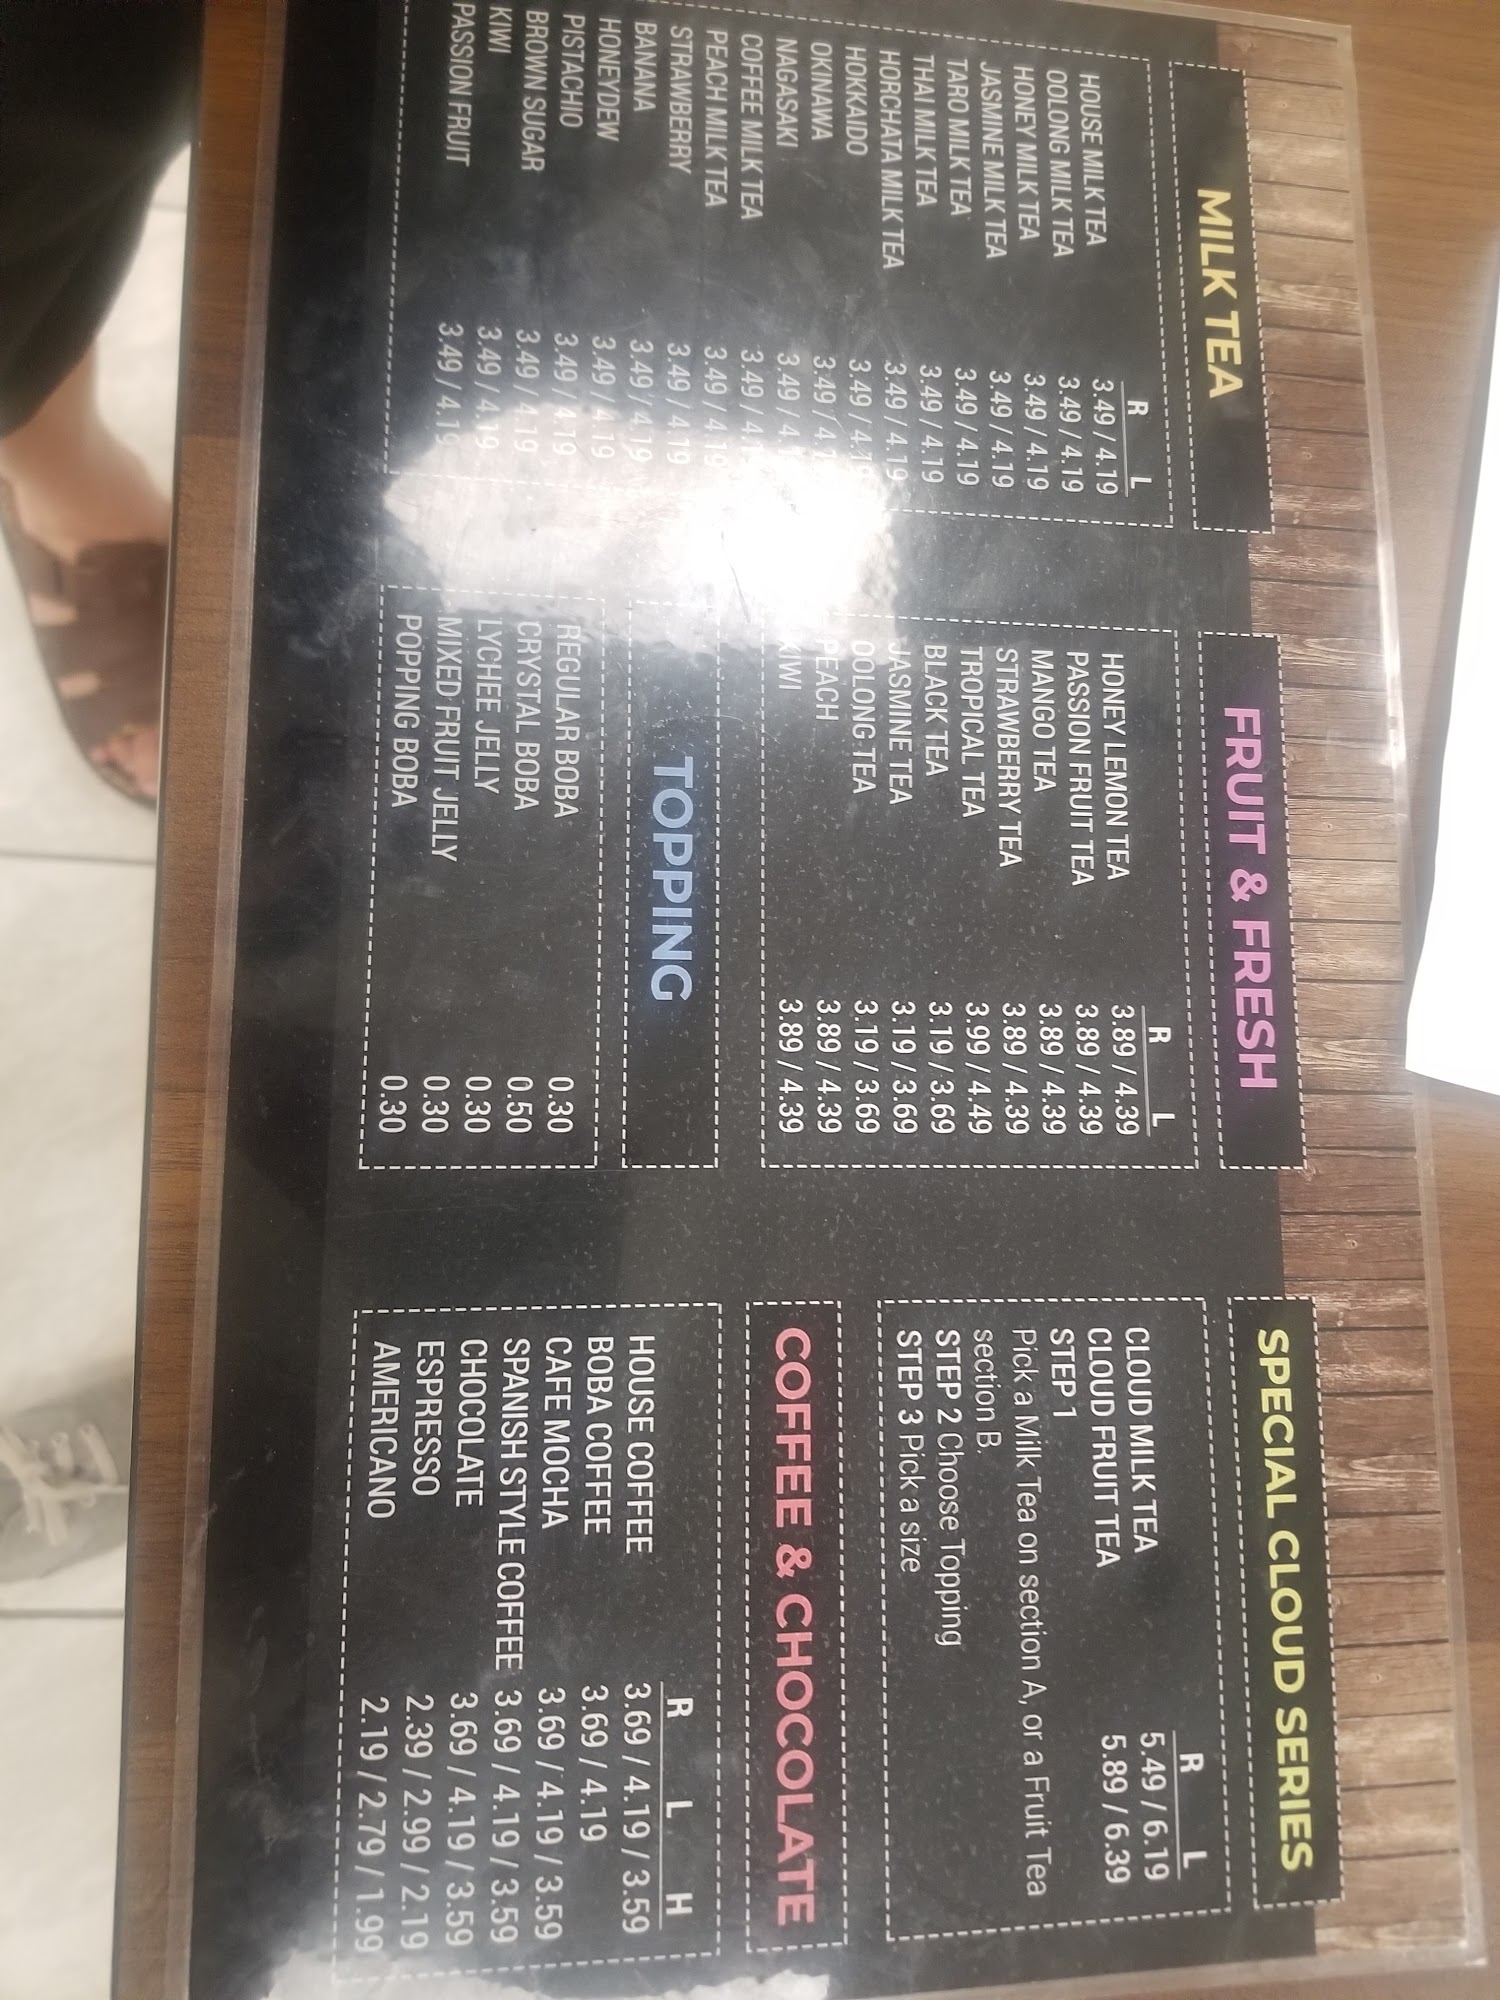 MILK TEA
R L
HOUSE MILK TEA 3.49 / 4.19
OOLONG MILK TEA 3.49 / 4.19
HONEY MILK TEA 3.49 / 4.19
JASMINE MILK TEA 3.49 / 4.19
TARO MILK TEA 3.49 / 4.19
THAI MILK TEA 3.49 / 4.19
HORCHATA MILK TEA 3.49 / 4.19
HOKKAIDO 3.49 / 4.19
OKINAWA 3.49 /
NAGASAKI 3.49 /
COFFEE MILK TEA 3.49 /
PEACH MILK TEA 3.49 / 4.19
STRAWBERRY 3.49 / 4.19
BANANA 3.49 / 4.19
HONEYDEW 3.49 / 4.19
PISTACHIO 3.49 / 4.19
BROWN SUGAR 3.49 / 4.19
KIWI 3.49 / 4.19
PASSION FRUIT 3.49 / 4.19
FRUIT & FRESH
R L
HONEY LEMON TEA 3.89 / 4.39
PASSION FRUIT TEA 3.89 / 4.39
MANGO TEA 3.89 / 4.39
STRAWBERRY TEA 3.89 / 4.39
TROPICAL TEA 3.99 / 4.49
BLACK TEA 3.19 / 3.69
JASMINE TEA 3.19 / 3.69
OOLONG TEA 3.19 / 3.69
PEACH 3.89 / 4.39
KIWI 3.89 / 4.39
TOPPING
REGULAR BOBA 0.30
CRYSTAL BOBA 0.50
LYCHEE JELLY 0.30
MIXED FRUIT JELLY 0.30
POPPING BOBA 0.30
SPECIAL CLOUD SERIES
R L
CLOUD MILK TEA 5.49 / 6.19
CLOUD FRUIT TEA 5.89 / 6.39
STEP 1
Pick a Milk Tea on section A, or a Fruit Tea
section B.
STEP 2 Choose Topping
STEP 3 Pick a size
COFFEE & CHOCOLATE
R L H
HOUSE COFFEE 3.69 / 4.19 / 3.59
BOBA COFFEE 3.69 / 4.19
CAFE MOCHA 3.69 / 4.19 / 3.59
SPANISH STYLE COFFEE 3.69 / 4.19 / 3.59
CHOCOLATE 3.69 / 4.19 / 3.59
ESPRESSO 2.39 / 2.99 / 2.19
AMERICANO 2.19 / 2.79 / 1.99